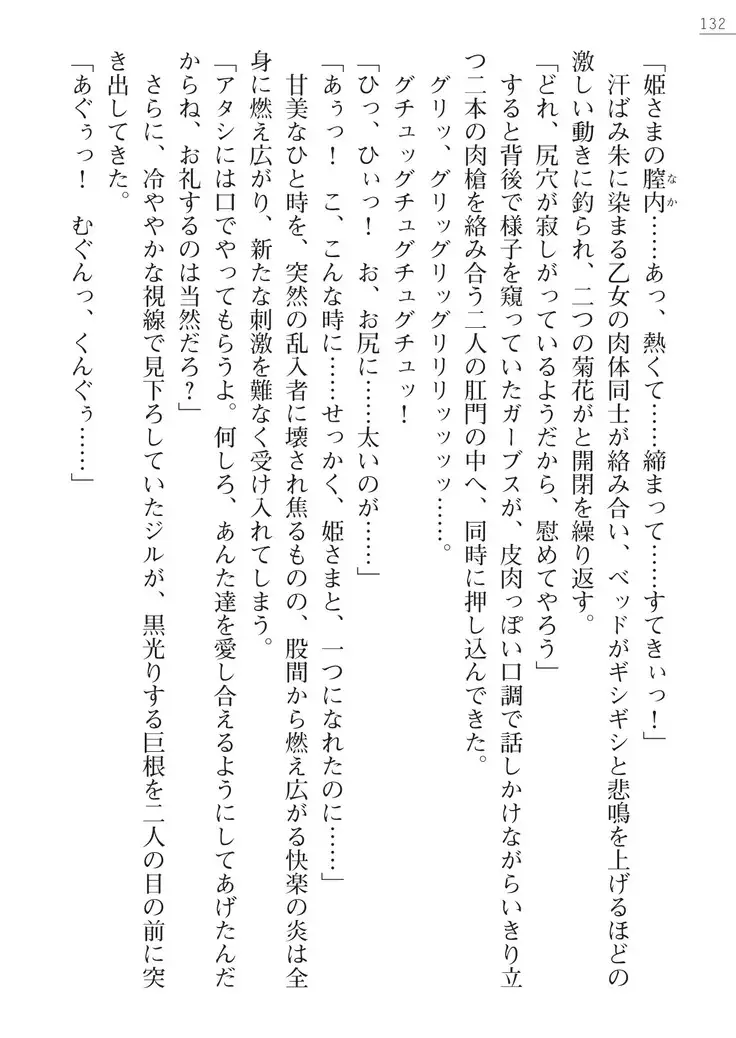 132
「姫さまの膣内……あっ、熱くて……締まって……すてきぃっ！」
なか
汗ばみ朱に染まる乙女の肉体同士が絡み合い、ベッドがギシギシと悲鳴を上げるほどの
激しい動きに釣られ、二つの菊花がと開閉を繰り返す。
「どれ、尻穴が寂しがっているようだから、慰めてやろう」
すると背後で様子を窺っていたガーブスが、皮肉っぽい口調で話しかけながらいきり立
つ二本の肉槍を絡み合う二人の肛門の中へ、同時に押し込んできた。
グリッ、グリッグリッグリリリッッッッ……。
グチュッグチュグチュグチュッ！
「ひっ、ひぃっ！　お、お尻に……太いのが……」
「あぅっ！　こ、こんな時に……せっかく、姫さまと、一つになれたのに……」
甘美なひと時を、突然の乱入者に壊され焦るものの、股間から燃え広がる快楽の炎は全
身に燃え広がり、新たな刺激を難なく受け入れてしまう。
「アタシには口でやってもらうよ。何しろ、あんた達を愛し合えるようにしてあげたんだ
からね、お礼するのは当然だろ？」
さらに、冷ややかな視線で見下ろしていたジルが、黒光りする巨根を二人の目の前に突
き出してきた。
「あぐぅっ！　むぐんっ、くんぐぅ……」